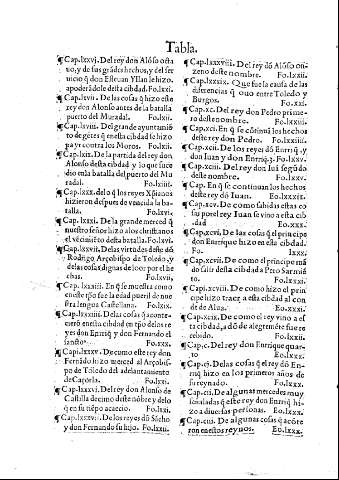 Tabla.
¶Cap.lxxvj. Del rey don Alõso octa
uo, y de sus grãdes hechos, y del ser
uicio q̃ don Esteuan Yllan le hizo.
apoderãdole desta cibdad. Fo.lxi.
¶Cap.lxvii. De las cosas q̃ hizo este
rey don Alonso antes de la batalla
puerto del Muradal. Fo.lxiii.
¶Cap.lxviii. Del grande ayuntamiẽ
to de gẽtes q̃ en esta cibdad se hizo
pa yr contra los Moros. Fo.lxii.
¶Cap.lxix. De la partida del rey don
Alonso desta cibdad y lo que suce
dio en la batalla del puerto del Mu
radal. Fo.lxiii.
¶Cap.lxxx. de lo q̃ los reyes Xp̃ianos
hizieron despues de vencida la ba-
talla. Fo.lxvi.
¶Cap. lxxxi. De la grande merced q̃
nuestro señor hizo a los christianos
el vẽcimiẽto desta batalla. Fo.lxvi.
Cap.lxxvii. De las virtudes deste dõ
Rodrigo Arçobispo de Toledo, y
de las cosas dignas de loor por el he
chas. Fo.lxvii.
¶Cap. lxxxiii. En q̃ se muestra como
en este tp̃o fue la edad pueril de nue
stra lengua Castellana. Fo.lxix.
¶Cap.lxxxiiii. De las cosas q̃ aconte-
cierõ en esta cibdad en tp̃o delos re
yes don Enriq̃ y don Fernando el
sancto. Fo.lxx.
¶Capi.lxxxv. De como este rey don
Fernãdo hizo merced al Arçobis-
po de Toledo del adelantamiento
de Caçorla. Fo.lxxi.
¶Cap.lxxxvi. Del rey don Alonso de
Castilla decimo deste nõbre y delo
q̃ en su tiẽpo acaecio. Fo.lxxi.
¶Cap.lxxxvii. De los reyes dõ Sãcho
y don Fernando su hijo. Fo.lxxii.
¶Cap.lxxxviii. Del rey dõ Alõso on
zeno deste nombre. Fo.lxxii.
¶Cap.lxxxix. Que fue la causa de las
diferencias q̃ ouo entre Toledo y
Burgos. Fo.xxi.
¶Cap.xc. Del rey don Pedro prime-
ro deste nombre. Fo.lxxiii.
¶Cap.xci. En q̃ se cõtinuã los hechos
deste rey don Pedro. Fo.lxxiiii.
¶Cap.xcii. De los reyes dõ Enriq̃, y
don Juan y don Enriq̃.3. Fo.lxxv.
¶Cap.xciii. Del rey don Juã segũdo
deste nombre. Fo.lxxv.
¶Cap. En q̃ se continuan los hechos
deste rey dõ Juan. Fo.lxxvi.
¶Cap.xcv. De como sabidas estas co
sas por el rey Juan se vino a esta cib
dad Fo.xxx.
¶Cap.xcvi. De las cosas q̃ el principe
don Enrique hizo en esta cibdad.
Fo. lxxx.
¶Cap.xcvii. De como el principe mã
do salir desta cibdad a Pero Sarmiẽ
to. Fo.lxxx.
¶Capi.xcviii. De como hizo el prin
cipe hizo tracz a esta cibdad al con
de de Alua. Fo.lxxx.
¶Cap.xcix. De como el rey vino a es
ta cibdad, a dõ de alegremẽte fue re
cebido. Fo.lxxii.
¶Cap.c. Del rey don Enrique quar-
to. Fo.lxxx.
¶Cap.ci. De las cosas q̃ el rey dõ En
riq̃ hizo en los primeros años de
su reynado. Fo.lxxx.
¶Cap.cii. De algunas mercedes muy
señaladas q̃ este rey don Enriq̃ hi-
zo a diuersas personas. Fo.lxxx.
¶Cap.ciii. De algunas cosas q̃ acõte
cieron en estos reynos. Fo.lxxx.